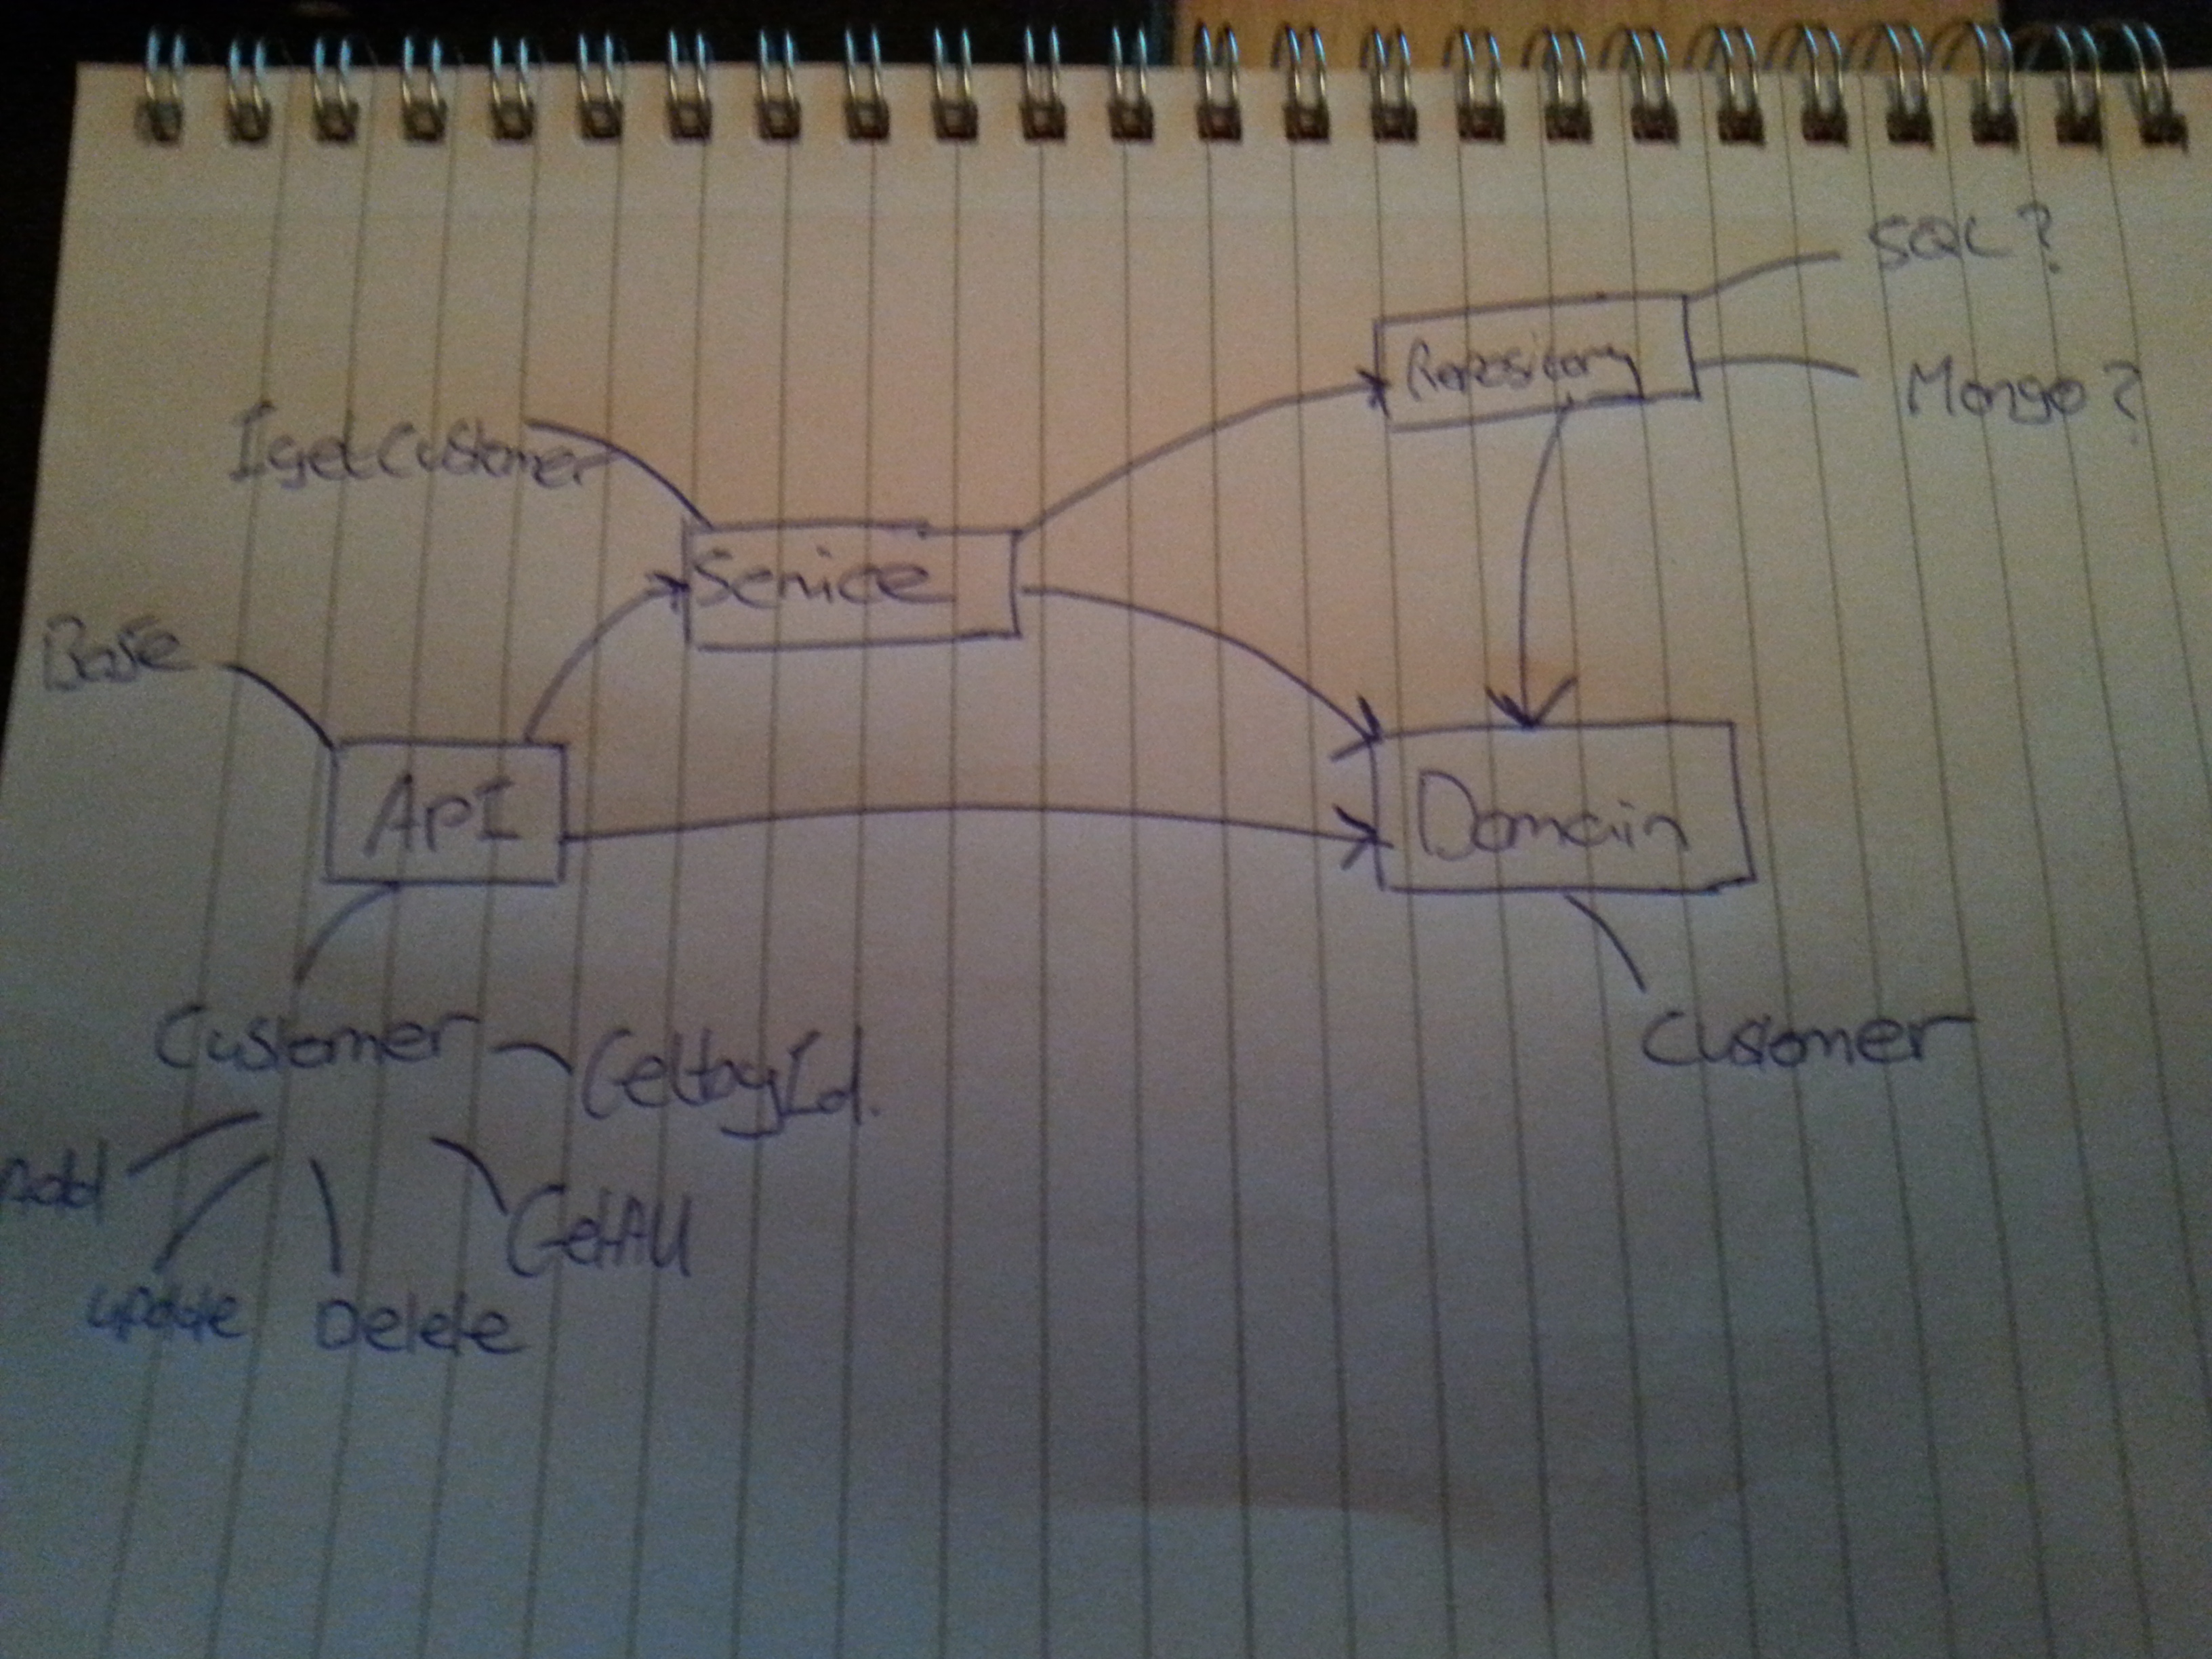 SQL?
Repository
Mongo?
IgetCustomer
Service
Base
API
Domain
Customer
GetbyId.
Customer
Add
GetAll
update
Delete